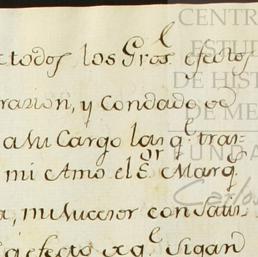 todos los Gros^l efectos
, y Condado de
a su Cargo las q^e tras=
mi Amo el S^or Marq^s
a, mi sucesor con
efecto q^e sigan
CENTR
ESTUDI
DE HIST
DE ME
FUNDA
Carlos